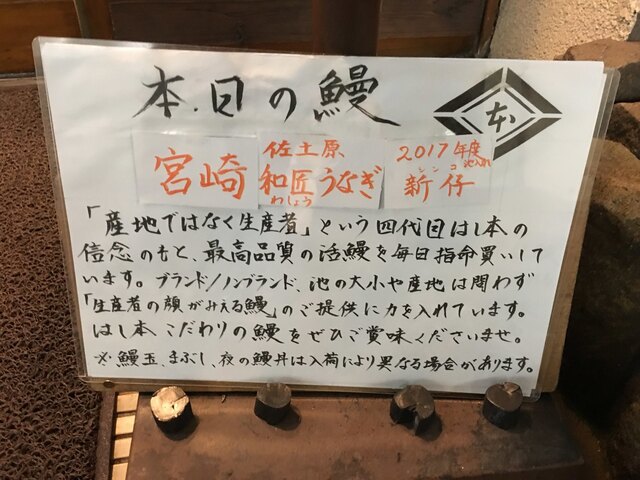 本日の鰻
本
宮崎
佐土原
和匠うなぎ
わしょう
2017年度
池入れ
シンコ
新仔
「産地ではなく生産者」という四代目はし本の
信念のもと、最高品質の活鰻を毎日指命買いして
います。ブランド/ノンブランド、池の大小や産地は問わず
「生産者の顔がみえる鰻」のご提供に力を入れています。
はし本こだわりの鰻をぜひご賞味くださいませ。
※鰻玉、まぶし、夜の鰻丼は入荷により異なる場合があります。